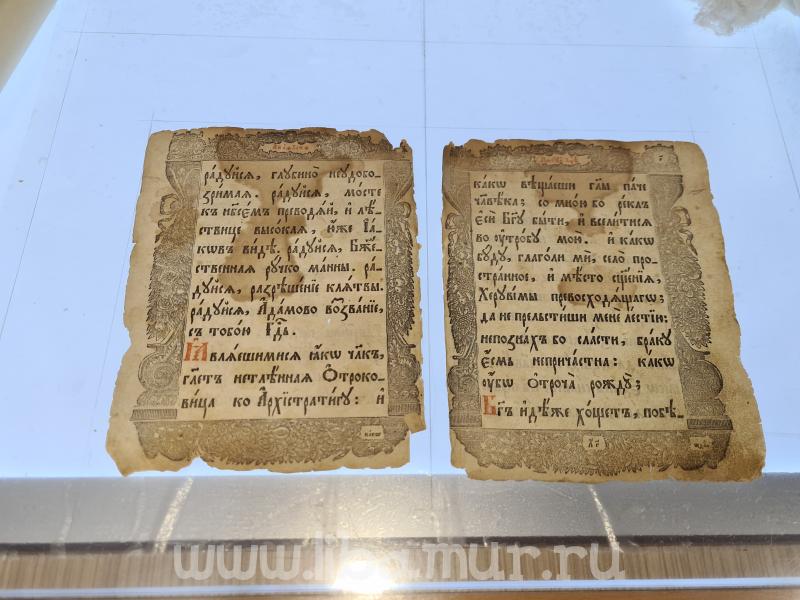 ра́дꙋйсѧ, глꙋбино̀ неꙋдобо-
зри́маѧ. ра́дꙋйсѧ, мо́сте
къ нб҃се́мъ преводѧ́й, и҆ лѣ́-
ствице высо́каѧ, ю҆́же І҆а́-
кѡвъ ви́дѣ. ра́дꙋйсѧ, Бж҃е́-
ственнаѧ рꙋ́чко ма́нны. ра́-
дꙋйсѧ, разрѣше́ние клѧ́твы.
ра́дꙋйсѧ, А҆да́мово воззва́ние,
съ тобо́ю Гд҇ь.
Ꙗ҆влѧ́ешимисѧ ꙗ҆́кѡ чл҃къ,
гл҃етъ нетлѣ́ннаѧ Ѻ҆троко-
ви́ца ко А҆рхїстрати́гꙋ: и҆
ка́кѡ
ка́кѡ вѣща́еши гл҃ы па́че
чл҃вѣ́ка; со мно́ю бо ре́клъ
є҆сѝ Бг҃ꙋ бы́ти, и҆ всели́тисѧ
во ᲂу҆тро́бꙋ мою̀. и҆ ка́кѡ
бꙋ́дꙋ, глаго́ли мѝ, село̀ про-
стра́нное, и҆ мѣ́сто сщ҃е́ниѧ,
Херꙋви́мы превосходѧ́щагѡ;
да не прельсти́ши менѐ ле́стию:
непозна́хъ бо сла́сти, бра́кꙋ
є҆́смь неприча́стна: ка́кѡ
ᲂу҆́бѡ Ѻ҆троча̀ рождꙋ̀;
Бг҃ъ и҆дѣ́же хо́щетъ, побѣ-
www.libamur.ru